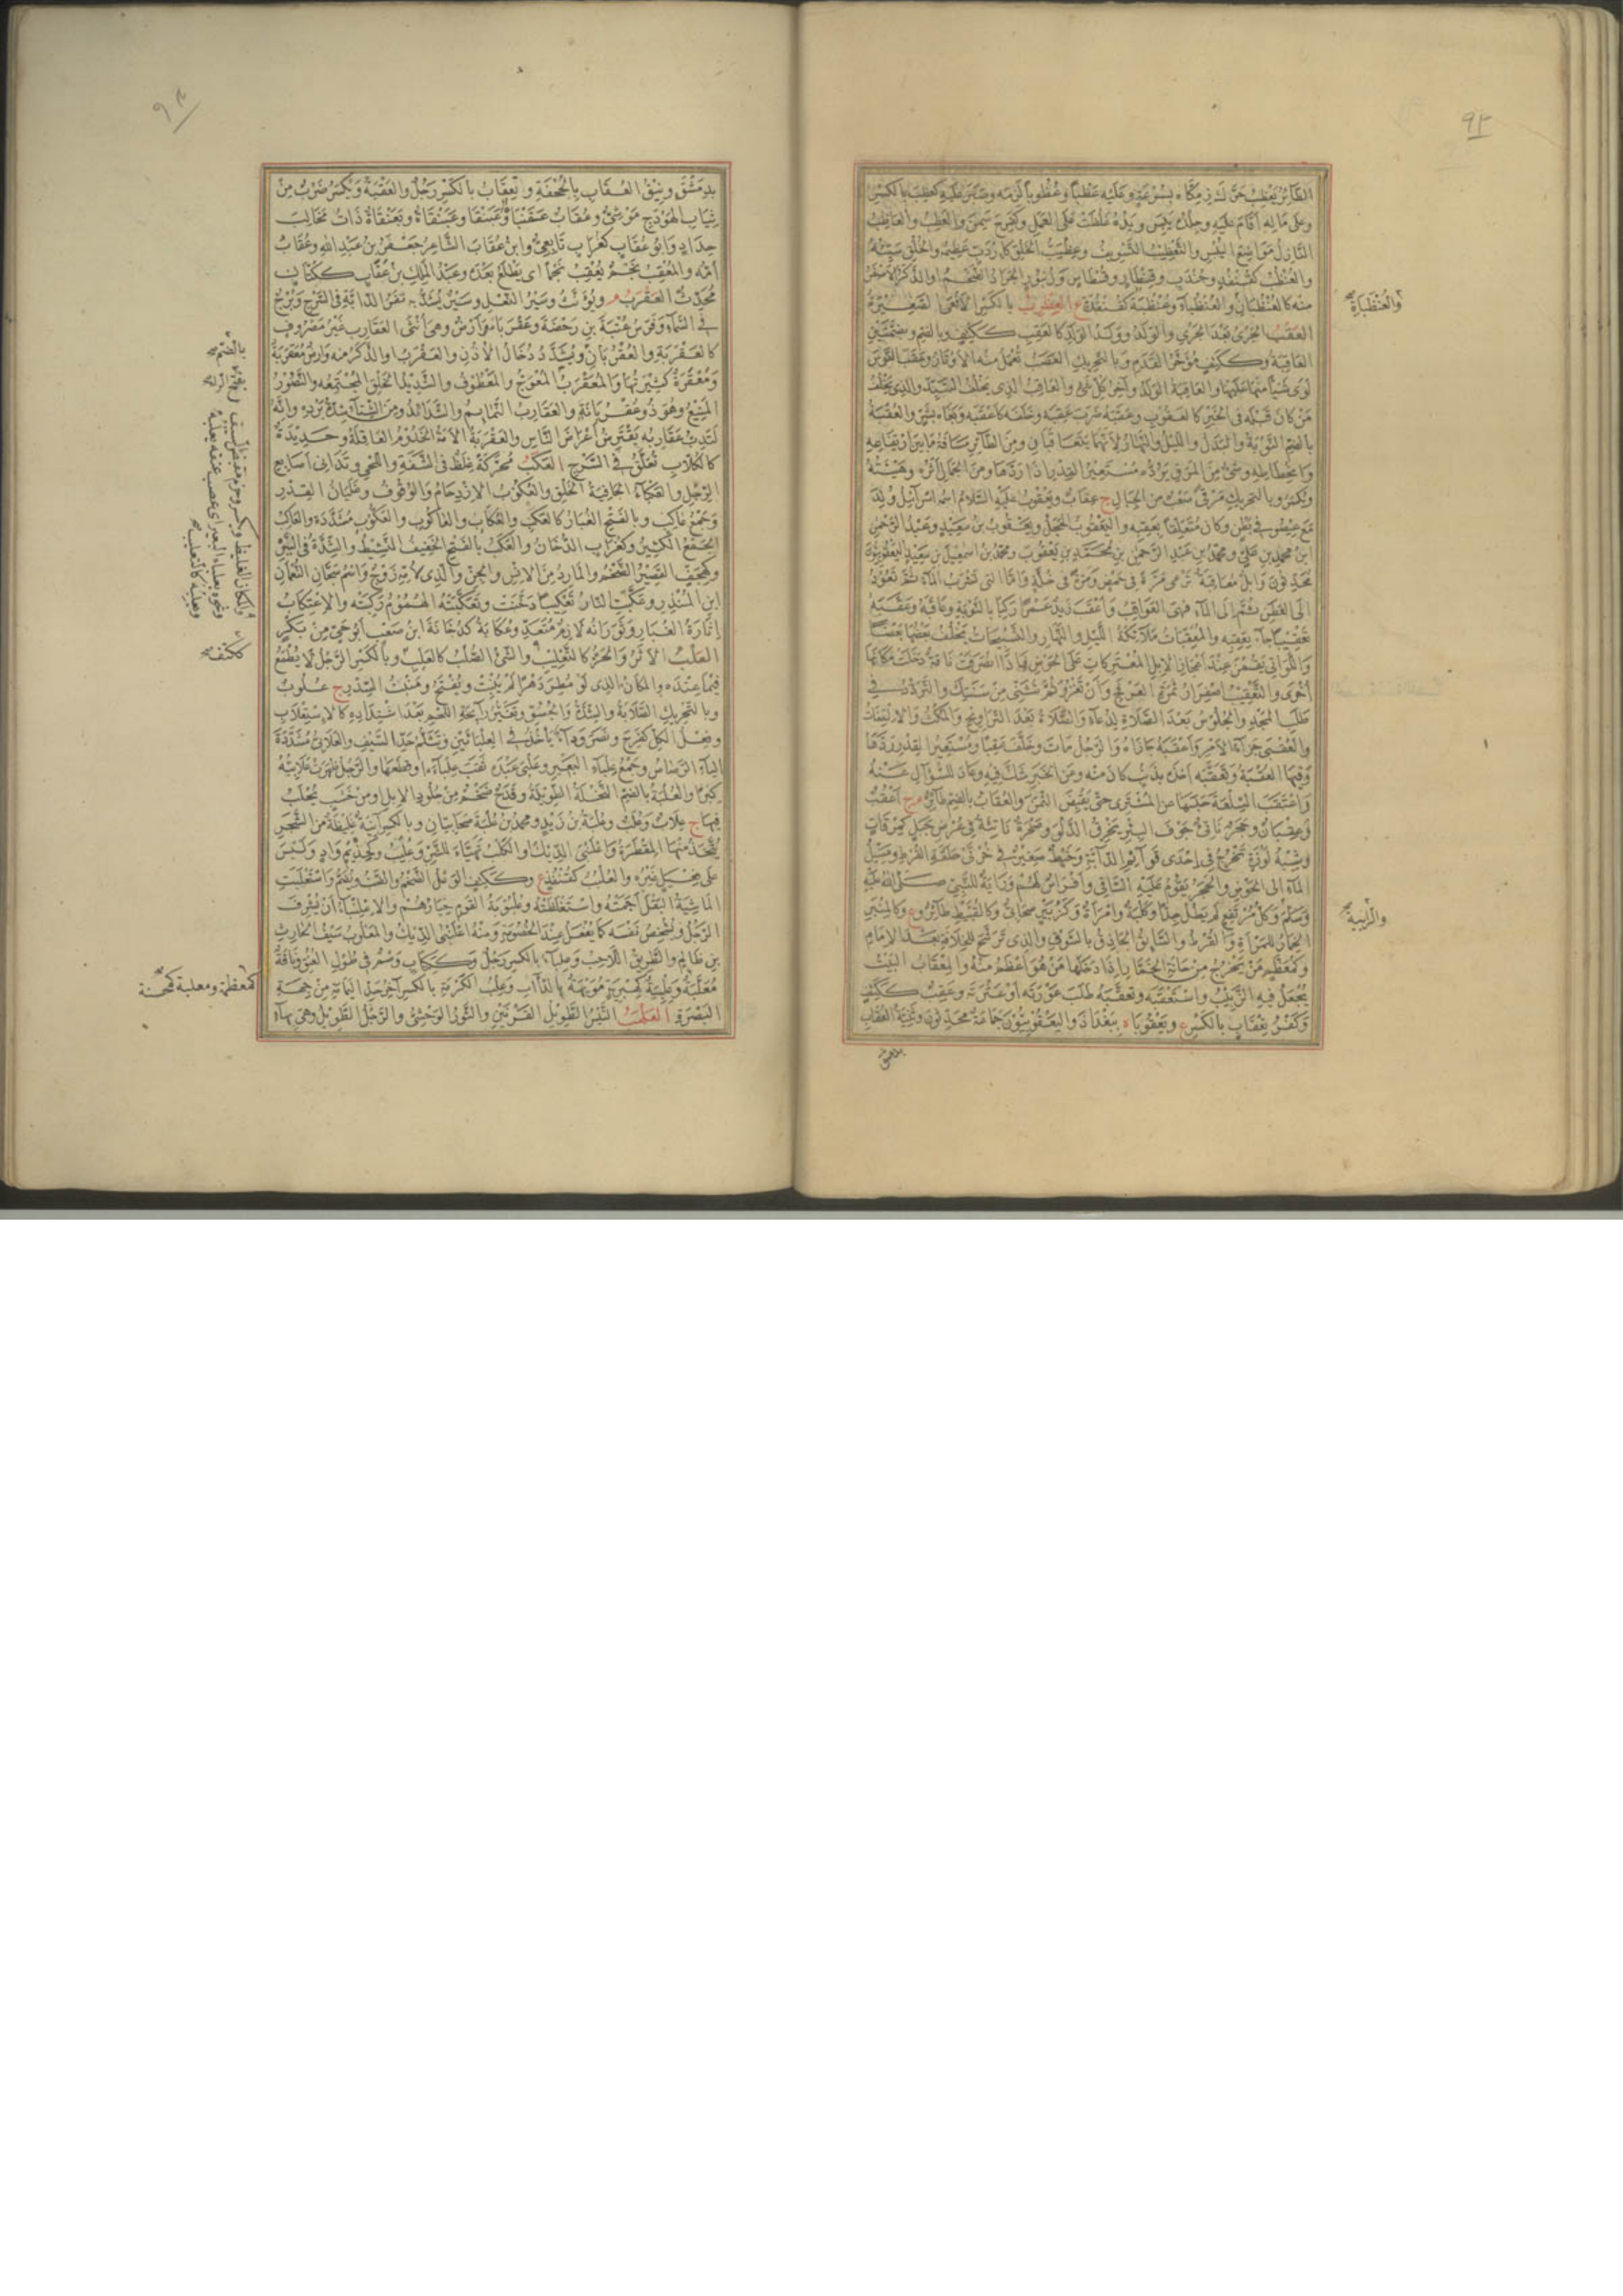 الطائر يعظب حرك زمكاه بسرعة وعليه عظبا وعظوبا لزمه وصبر عليه كعظب بالكسر
وعلى ماله أقام عليه وجلده يبس ويده غلظت على العمل وكفرح سمن والعظب والعاظب
النازل مواضع اليبس والتعظيب التسويف وعظيب الخلق كاردب عظيم والخلق سيئه
والعنظب كقنفذ وجندب وقنطار وقسطاس وزنبور الجراد الضخم او الذكر الاصفر
منه كالعنظبان والعنظباء وعنظبة كقنفذة ع العظرب بالكسر الافعى الصغيرة
والعنظبانة
العقب الجري بعد الجري والولد وولد الولد كالعقب ككتف وبالضم وبضمتين
العاقبة وككتف مؤخر القدم وبالتحريك العصب تعمل منه الاوتار وعقب القوس
لوى شيأ منها عليها والعاقبة الولد وآخر كل شئ والعاقب الذي يخلف السيد والذي يخلف
من كان قبله في الخير كالعقوب وعقبه ضرب عقبه وخلفه كاعقبه وبغاه بشر والعقبة
بالضم النوبة والبدل والليل والنهار لانهما يتعاقبان ومن الطائر مسافة ما بين ارتفاعه
وانحطاطه وشئ من المرق يرده مستعير القدر اذا ردها ومن الجمال اثره وهيئته
ويكسر وبالتحريك مرقى صعب من الجبال ج عقاب ويعقوب عليه السلام اسمه اسرائيل ولد
مع عيصو في بطن وكان متعلقا بعقبه واليعقوب الحجل ويعقوب بن سعيد وعبد الرحمن
ابن محمد بن علي ومحمد بن عبد الرحمن بن محمد بن يعقوب ومحمد بن اسمعيل بن سعيد اليعقوبيون
محدثون وابل معاقبة ترعى مرة في حمض ومرة في خلة واما التي تشرب الماء ثم تعود
الى العطن ثم الى الماء فهي العواقب واعقب زيد عمرا ركبا بالنوبة وعاقبه وعقبه
تعقيبا جاء بعقبه والمعقبات ملائكة الليل والنهار والتسبيحات يخلف بعضها بعضا
واللواتي يقمن عند اعجاز الابل المعتركات على الحوض فاذا انصرفت ناقة دخلت مكانها
اخرى والتعقيب اصفرار ثمرة العرفج وان تغزو ثم تثني من سنتك والتردد في
طلب المجد والجلوس بعد الصلاة لدعاء والصلاة بعد التراويح والمكث والالتفات
والعقبى جزاء الامر واعقبه جازاه والرجل مات وخلف عقبا ومستعير القدر ردها
وفيها العقبة وتعقبه اخذه بذنب كان منه وعن الخبر شك فيه وعاد للسؤال عنه
واعتقب السلعة حبسها عن المشتري حتى يقبض الثمن والعقاب بالضم طائر م ج اعقب
وعقبان وحجر ناتئ في جوف البئر يخرق الدلو وصخرة ناشئة في عرض جبل كمرقاة
وشبه لوزة تخرج في احدى قوائم الدابة وخيط صغير في خرتي حلقة القرط ومسيل
الماء الى الحوض والحجر يقوم عليه الساقي وافراس لهم وراية للنبي صلى الله عليه
والرابية
وسلم وكل مرتفع لم يطل جدا وكلبة وامرأة وكزبير صحابي وكالقبيط طائر وع وكالمنبر
الخمار للمرأة والقرط والسائق الحاذق بالسوق والذي ترشح للخلافة بعد الامام
وكمعظم من يخرج من حانة الخمار اذا دخلها من هو اعظم منه والمعقاب البيت
يجعل فيه الزبيب واستعقبه وتعقبه طلب عورته او عثرته وعقب ككتف
وكفر تعقاب بالكسر ويعقوبا ة ببغداد واليعقوبيون جماعة محدثون وثنية العقاب
بدمشق
بدمشق ونيق العقاب بالجحفة وتعقاب بالكسر رجل والعقبة ويكسر ضرب من
ثياب الهودج موشى وعقاب عقنباة وعبنقاة وبعنقاة ذات مخالب
حداد وابو عقاب كغراب تابعي وابن عقاب الشاعر جعفر بن عبد الله وعقاب
امه والمعقب نجم يعقب نجما اي يطلع بعده وعبد الملك بن عقاب ككتاب
محدث العقرب م ويؤنث وسير النعل وسير يشد به ثفر الدابة في السرج وبرج
في السماء وفرس عتبة بن رحضة وعقرباء ارض وهي انثى العقارب غير مصروف
كالعقربة والعقربان ويشدد دخال الاذن والعقرب او الذكر منه وارض معقربة
ومعقرة كثيرتها والمعقرب المعوج والمعطوف والشديد الخلق المجتمعه والنصور
المنيع وهو ذو عقربانة والعقارب النمائم والشدائد ومن الشتاء شدة برده وانه
لتدب عقاربه يقترض اعراض الناس والعقربة الامة الخدوم العاقلة وحديدة
كالكلاب تعلق في السرج العكب محركة غلظ في الشفة واللحي وتداني اصابع
الرجل والعكباء الجافية الخلق والعكوب الازدحام والوقوف وغليان القدر
وجمع عاكب وبالفتح الغبار كالعكب والعكاب والعاكوب والعكوب مشددة والعاكب
الجمع الكثير وكغراب الدخان والعكب بالفتح الخفيف النشيط والشدة في الشر
وكهجف القصير الضخم والمارد من الانس والجن والذي لامه زوج واسم سجان النعمان
ابن المنذر وعكبت النار تعكيبا دخنت وتعكبته الهموم ركبته والاعتكاب
اثارة الغبار وثورانه لازم متعد وعكابة كدخانة ابن صعب ابو حي من بكر
العلب الاثر والحز كالتعليب والشئ الصلب كالعلب وبالكسر الرجل لا يطمع
ككتف
فيما عنده والمكان الذي لو مطر دهرا لم ينبت ويفتح ومنبت السدر ج علوب
وبالتحريك الصلابة والشدة والجسؤ وتغير رائحة اللحم بعد اشتداده كالاستعلاب
وفعل الكل كفرح ونصر وداء ياخذ في العلباءين وتثلم حد السيف والعلابي مشددة
الياء الرصاص وجمع علباء البعير وعلبى عبده ثقب علباءه او قطعها والرجل ظهرت علابيه
كبرا والعلبة بالضم النخلة الطويلة وقدح ضخم من جلود الابل او من خشب يحلب
فيها ج علاب وعلب وعلبة بن زيد ومحمد بن علبة صحابيان وبالكسر ابنة غليظة من الشجر
يتخذ منها المقطرة واعلنبى الديك او الكلب تهيأ للشر وعليب وكحذيم واد وليس
على فعيل غيره والعلب كقنفذ ع وككتف الوعل الضخم والضب ويضم واستعلبت
الماشية البقل اجمته واستغلظته وعلبوبة القوم خيارهم والاعلنباء ان يشرف
الرجل ويشخص نفسه كما يفعل عند الخصومة ومنه اعلنبى الديك والمعلوب سيف الحارث
بن ظالم والطريق اللاحب وعلباء بالكسر رجل وككتاب وسم في طول العنق وناقة
كمعظمة ومعلبة كمحسنة
معلبة وعلبية كهبرية مويهة بالدآاب وعلب الكرمة بالكسر آخر حد اليمامة من جهة
البصرة العلهب التيس الطويل القرنين والثور الوحشي والرجل الطويل وهي بهاء